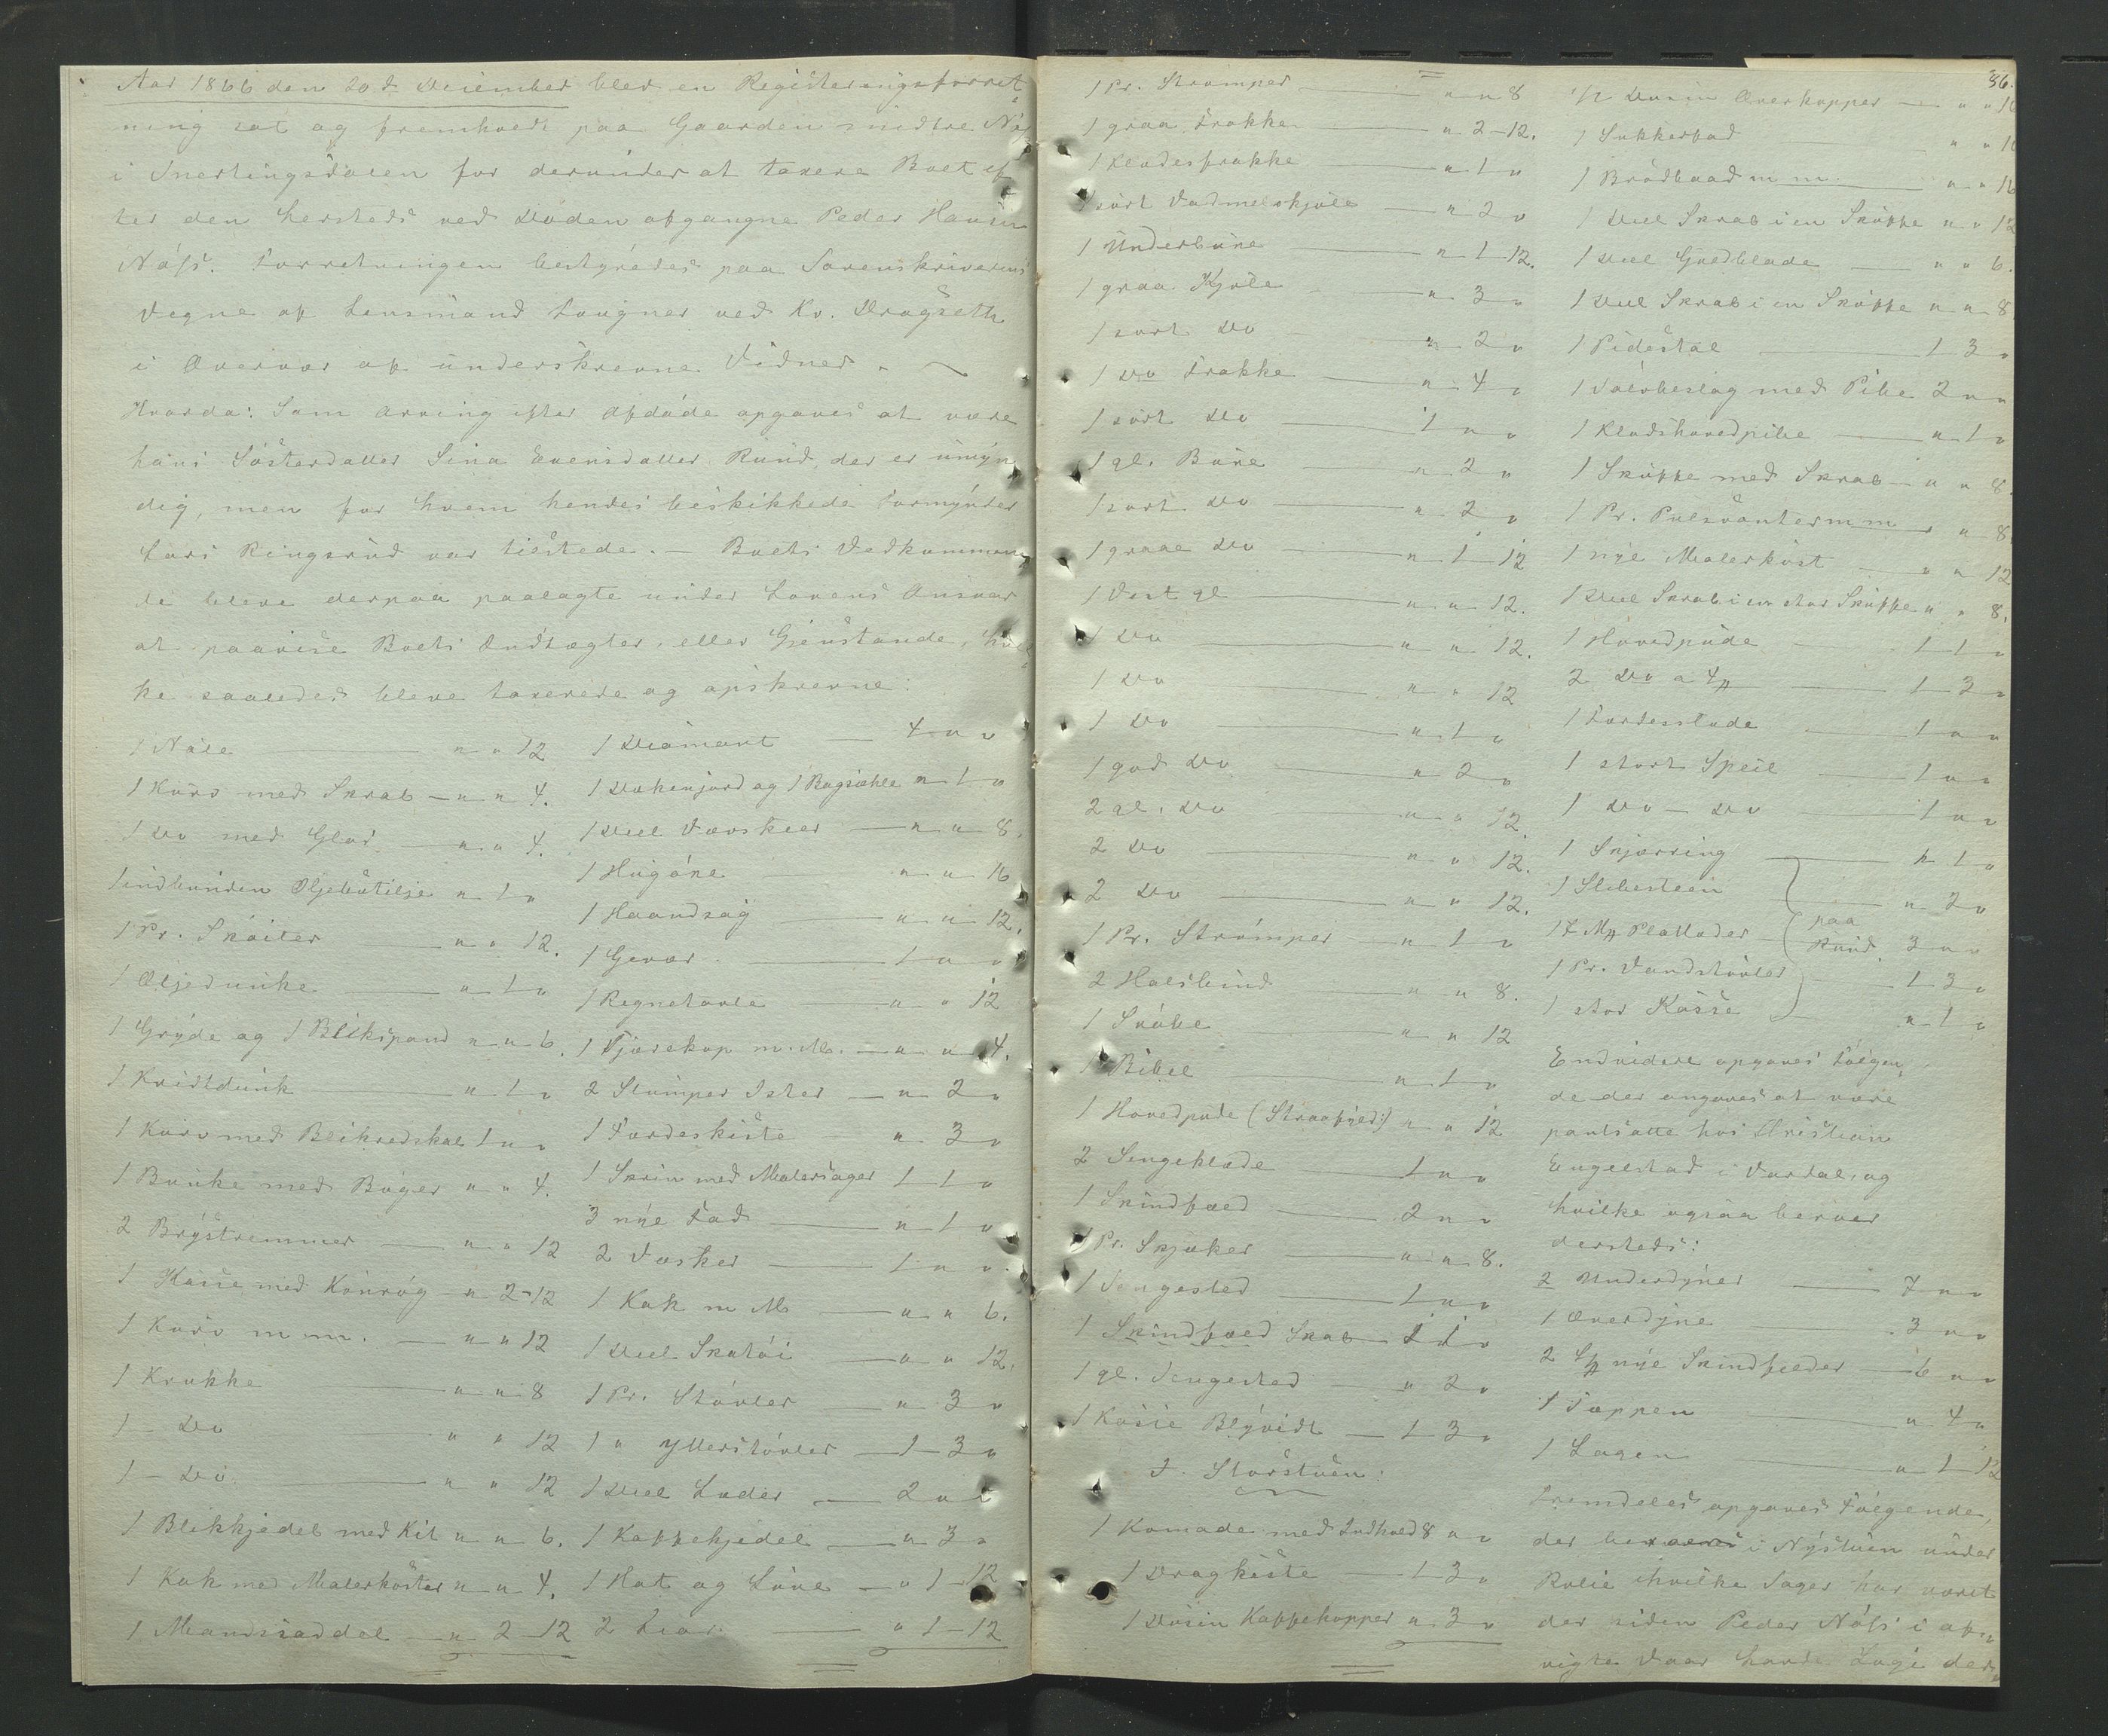 Aar 1866 den 20de December blev en Registeringsforret
ning sat og fremholdt paa Gaarden nedtre Næs
i Snertingsdalen for derunder at taxere Boet ef
ter den hersteds ved Døden afgangne Peder Hansen
Næss. Forretningen bestyredes paa Sorenskriverens
Vegne af Lensmand Lougner ved Kr. Dragseth
i Overvær af underskrevne Vidner.
Hvorda: Som Arving efter Afdøde opgaves at være
hans Søsterdatter Sina Evensdatter Rund, der er umyn
dig, men for hvem hendes beskikkede Formynder
Lars Ringsrud var tilstede. — Boets Vedkommen
de bleve derpaa paalagte under Lovens Ansvar
at paavise Boets Indtægter, eller Gjenstande, hvil
ke saaledes bleve taxerede og opskrevne:
1 " " 12
1 Kurv med Skrab — " " 4.
1 Do med Glas — " " 4.
1 indbunden " 1 "
1 Pr. Skøiter — " " 12.
1 Oljedunke — " 1 "
1 Gryde og 1 Blikspand " " 6.
1 Kridtdunk — " 1 "
1 Kurv med 1 " "
1 Bunke med Bøger " " 4.
2 Brystremmer — " " 12
1 Kasse med Kønrøg — " 2-12
1 Kurv m m. — " " 12
1 Krukke — " " 8
1 — Do — " " 12
1 — Do. — " " 12
1 Blikkjedel med Kit " " 6.
1 Kak med Malerkoster " " 4.
1 Mandssaddel — " 2-12
1 Diamant — 4 " "
1 og 1 " 1 "
1 Deel — " " 8.
1 Hugøxe — " " 16
1 Haandsag — " " 12.
1 Gevær — 1 " "
1 Regnetavle — " " 12
1 Tjærekop m. M. — " " 4.
2 Stumper Ister — " 2 "
1 Færdeskiste — " 3 "
1 Skrin med Malersager 1 1 "
3 nye Fad — " 1 "
2 Vesker — 1 " "
1 Kak m M — " " 6.
1 Deel Skotøi — " " 12.
1 Pr. Støvler — " 3 "
1 " Ytterstøvler — 1-3 "
1 Deel Læder — 2 " "
1 Kaffekjedel — " 3 "
1 Hat og Lue — " 1-12
2 Luer — " 1-12
1 Pr. Strømper — " " 8
1 graa Frakke — " 2-12.
1 Klædesfrakke — " 1 "
1 sort Vadmelskjole — " 2 "
1 Underbuxe — " 1-12.
1 graa Kjole — " 3 "
1 sort Do — " 2 "
1 Do Frakke — " 4 "
1 sort Do — 1 " "
1 gl. Buxe — " 2 "
1 sort Do — " 2 "
1 graae Do — " 1-12
1 Vest gl — " " 12.
1 Do — " " 12.
1 Do — " " 12
1 Do — " 1 "
1 god Do — " 2 "
2 gl. Do — " " 12.
2 Do — " " 12.
2 Do — " " 12.
1 Pr. Strømper — " 1 "
2 Halsbind — " " 8.
1 — " " 12
1 Bibel — " 1 "
1 Hovedpude (Straafyld:) " " 12
2 Sengeklæde — 1 " "
1 Skindfæld — 2 " "
1 Pr. Skjæker — " " 8.
1 Sengested — 1 " "
1 Skindfæld Skab — 1 1 "
1 gl. Sengested — " 2 "
1 Kasse Blyvidt — 1-3 "
I Storstuen:
1 Komode med Indhold 8 " "
1 Dragkiste — 1-3 "
1 Dusin Kaffekopper " 3 "
36.
1/2 Dusin Ølverkopper — " "
1 Sukkerfad — " "
1 Brødbrad m m. — " " 16
1 Deel Skrab i en Skuffe " " 12
1 Deel Guldblade — " " 6.
1 Deel Skrab i en Skuffe " " 8
1 Pidestal — 1 3 "
1 Sølvbeslag med Pibe 2 " "
1 Kladshovedpibe — " 1 "
1 Skuffe med Skrab — " " 8.
1 Pr. Pulsvanter m m " " 8.
1 nye Malerkost — " " 12
1 Deel Skrab i en stor Skuffe " " 8.
1 Hovedpude — 1 1 "
2 Do a — 1-3 "
1 — 1 " "
1 stort Speil — 1 " "
1 Do — Do — 1 " "
1 Snjørring — " 1 "
1 Slibesteen — " 2 "
17 Mrk Platlæder — paa Rund. 3 " "
1 Pr. Vandstøvler — 1-3 "
1 stor Kasse — " 1 "
Endvidere opgaves følgen-
de der angaves at være
pantsatte hos Christian
Engelstad i Vardal, og
hvilke ogsaa beroer
dersteds:
2 Underdyner — 7 " "
1 Overdyne — 3 " "
2 nye Skindfælder — 6 " "
1 Tæppen — " 4 "
1 Lagen — " 1-12
Fremdeles opgaves følgende,
der i Nystuen under
hvilke Sager har været
der siden Peder Næss i af-
vigte Vaar havde Logi der